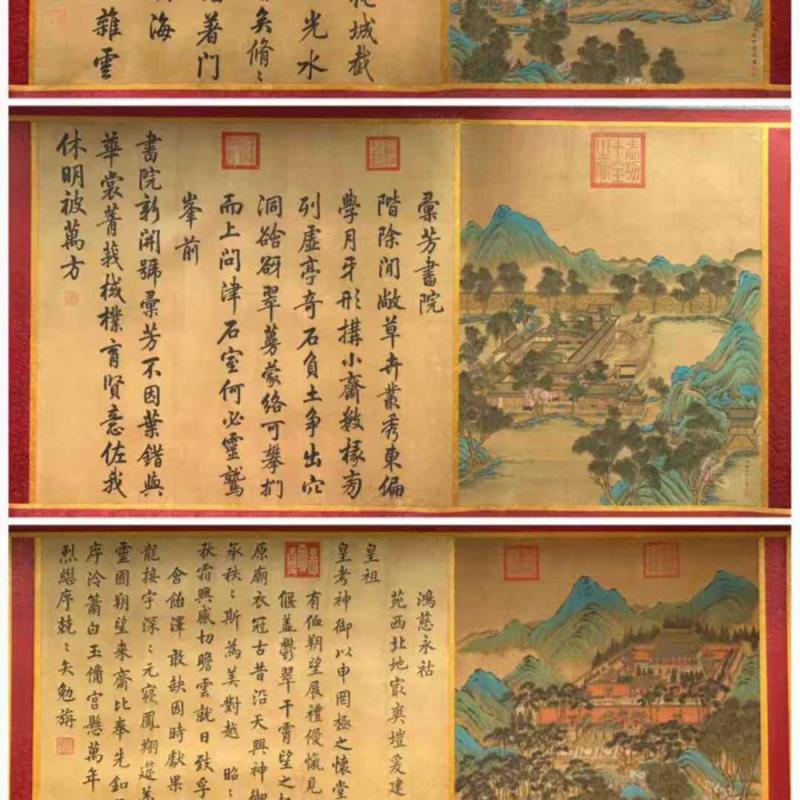 城截
光水
矣脩〻
著門
海
雜雲
彙芳書院
階除閒敞草卉叢秀東偏
學月牙形構小齋數椽旁
列虛亭奇石負土爭出穴
洞谽谺翠蔓蒙絡可攀捫
而上問津石室何必靈鷲
峯前
書院新開號彙芳不因葉錯與
華裳菁莪棫樸育賢意佐我
休明被萬方
鴻慈永祜
苑西北地最爽塏爰建
皇祖
皇考神御以申罔極之懷堂
有侐朔望展禮僾愾見
偃蓋鬱翠干霄望之
原廟衣冠古昔沿天興神御
承秩〻斯為美對越昭〻
秋霜興感切瞻雲就日致孚
含飴澤敢缺因時獻果
龍接宇深〻元寢鳳翔筵萬
靈囿朔望來齋比奉先釦
序泠簫白玉備宮懸萬年
烈繼序兢〻矣勉旃